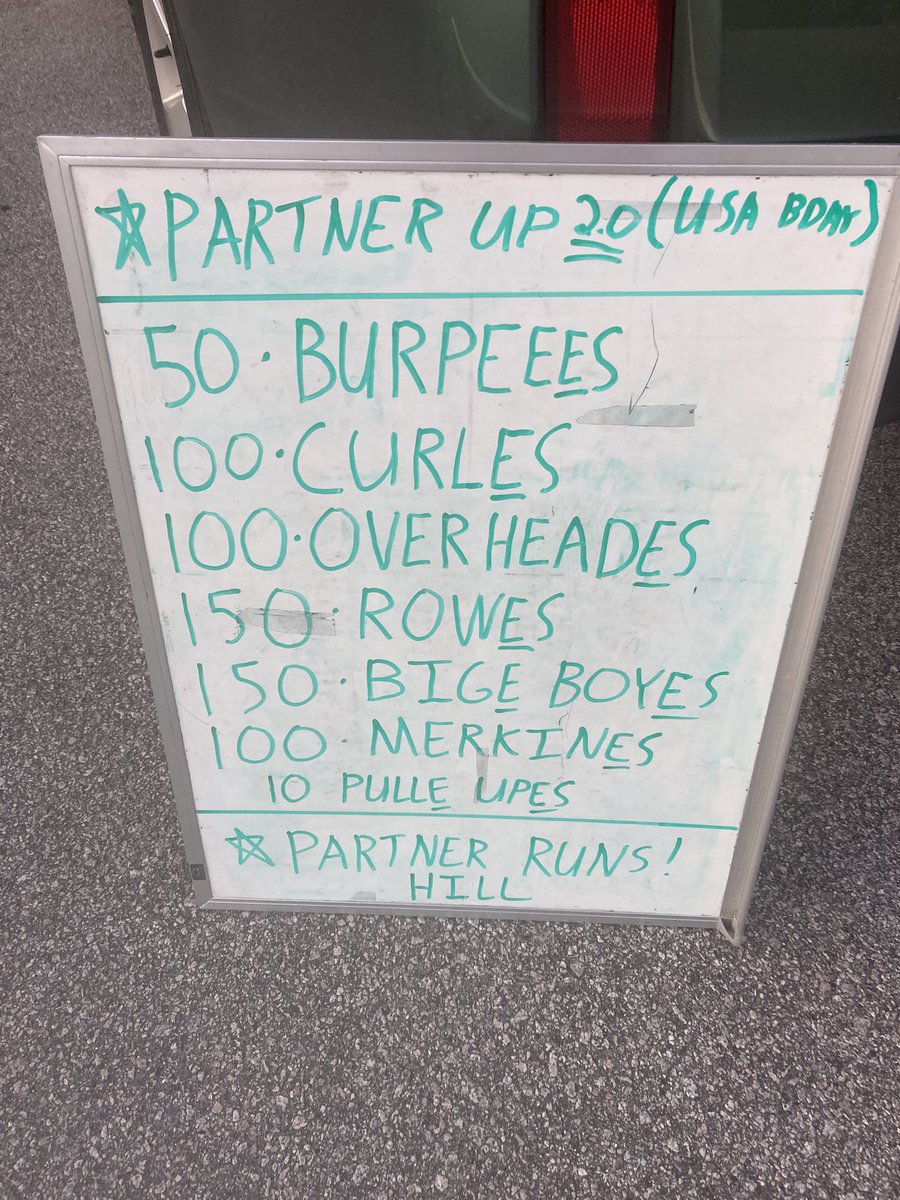 ☆ PARTNER UP 2.0 (USA BDAY)
50 · BURPEEES
100 · CURLES
100 · OVERHEADES
150 · ROWES
150 · BIGE BOYES
100 · MERKINES
10 PULLE UPES
☆ PARTNER RUNS!
HILL